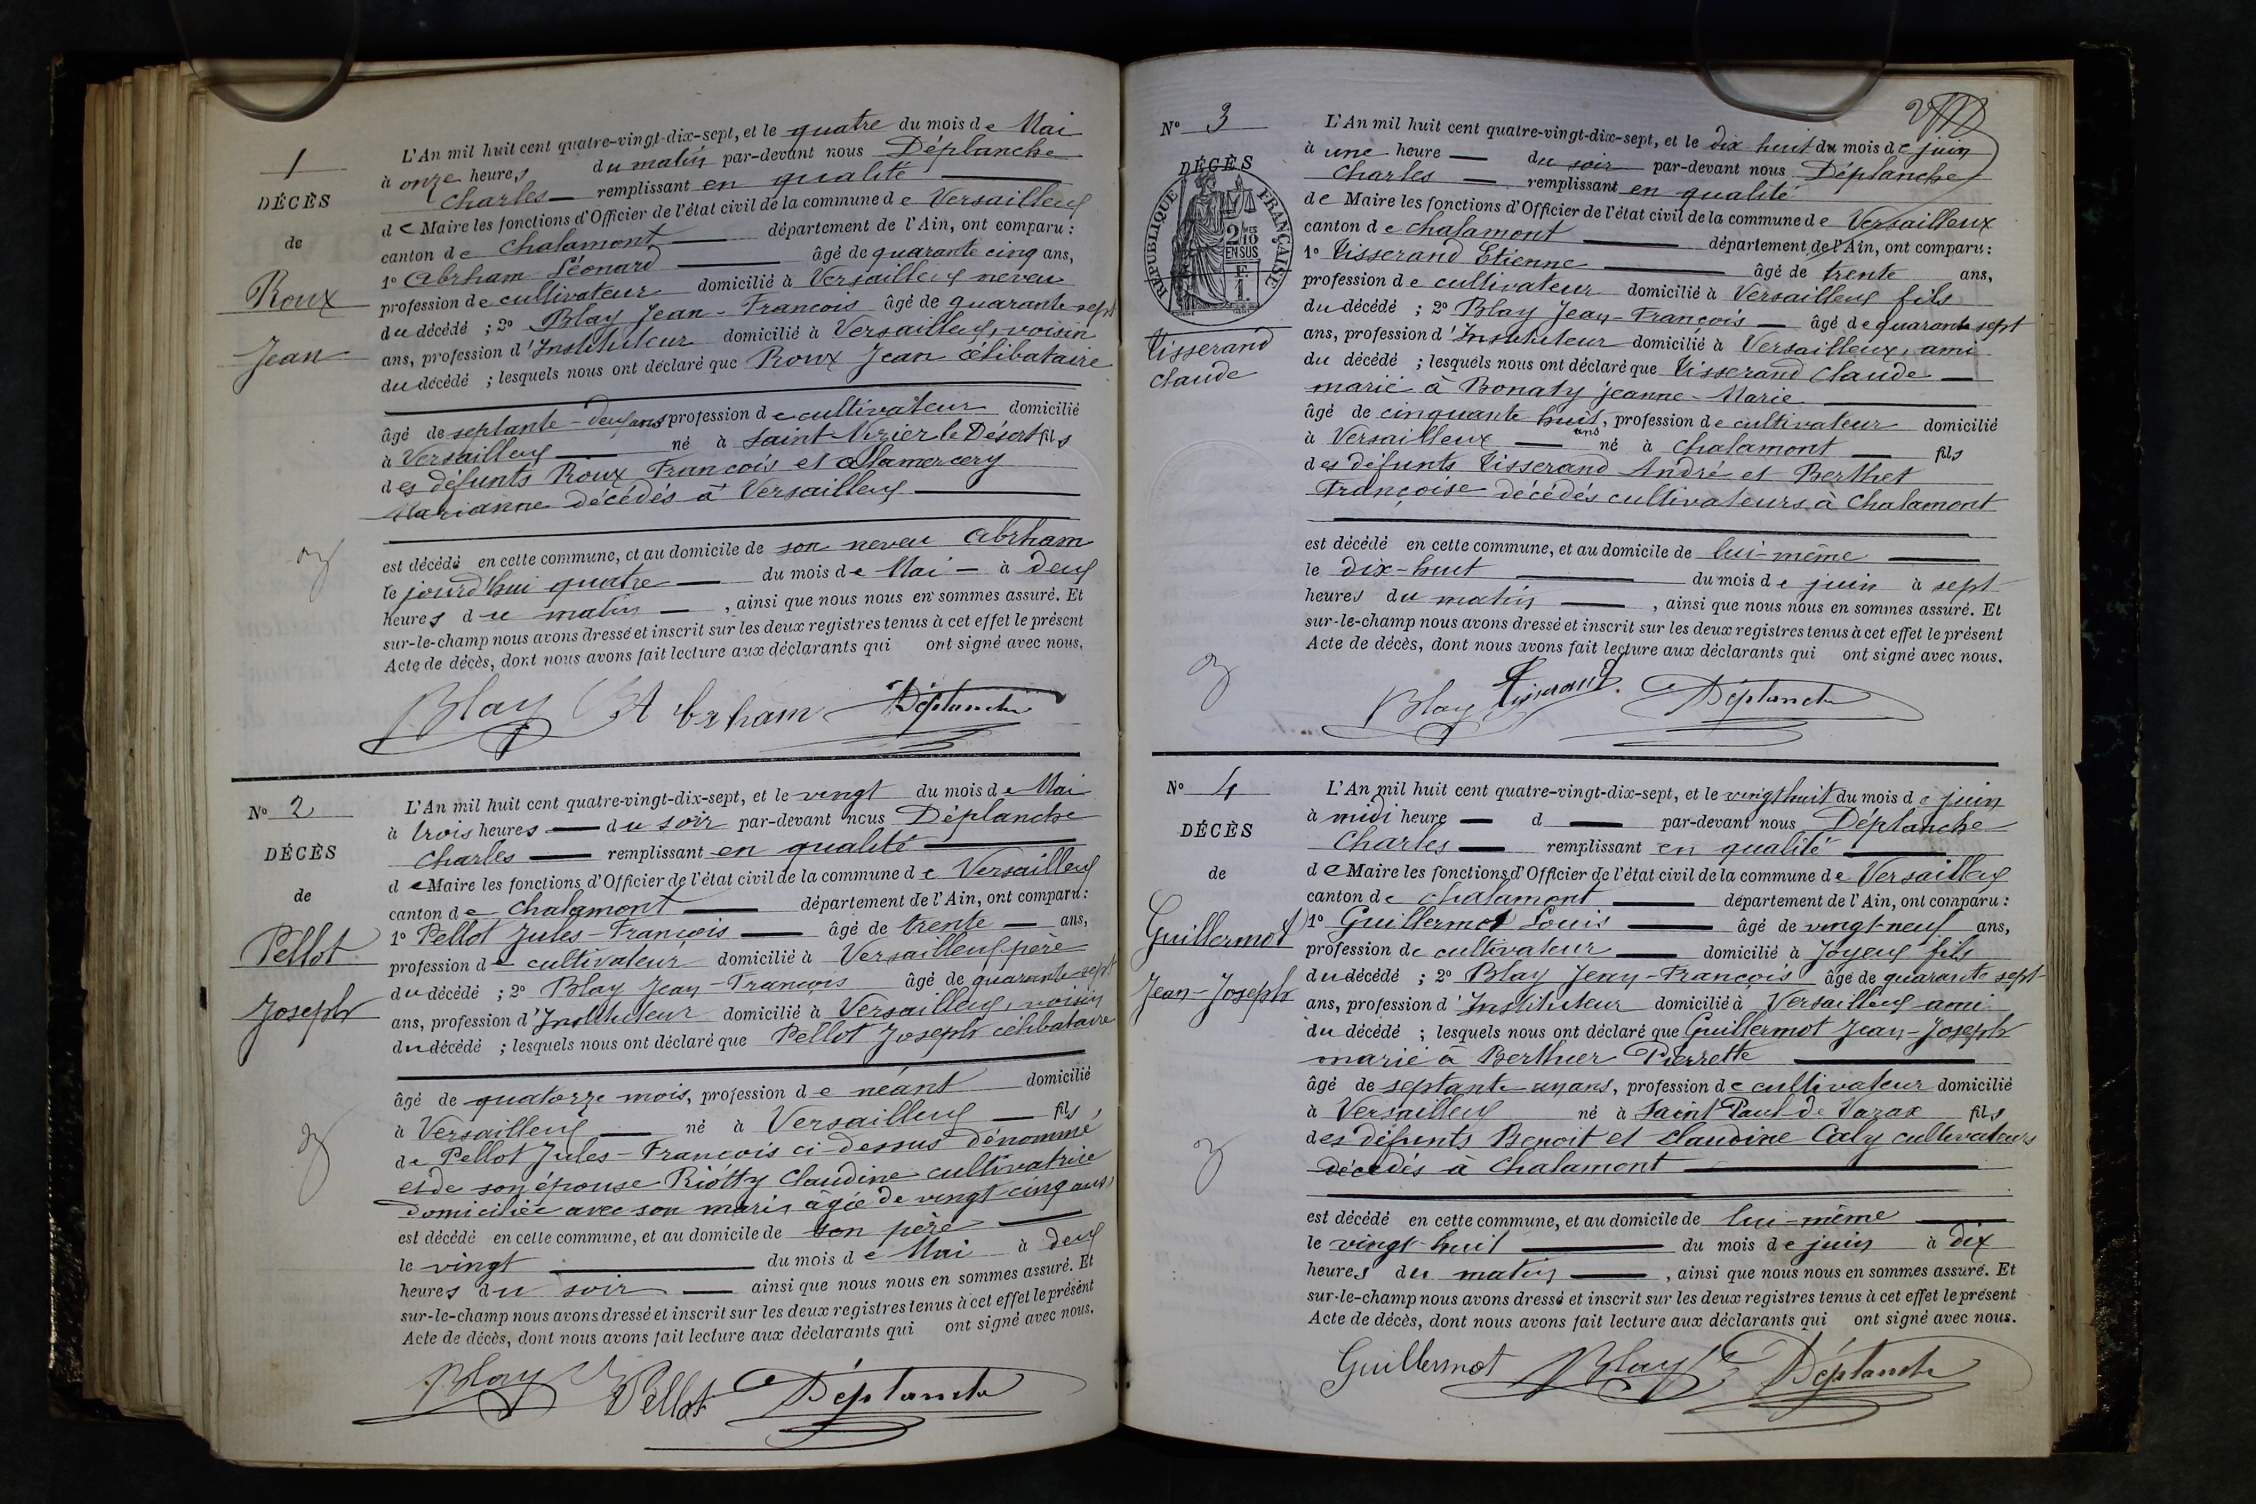 1
DÉCÈS
de
Roux
Jean
L'An mil huit cent quatre-vingt-dix-sept, et le quatre du mois de Mai
à onze heures du matin par-devant nous Déplanche
Charles — remplissant en qualité —
de Maire les fonctions d'Officier de l'état civil de la commune de Versailleux
canton de Chalamont — département de l'Ain, ont comparu :
1º Abrham Léonard — âgé de quarante cinq ans,
profession de cultivateur domicilié à Versailleux neveu
du décédé ; 2º Blay Jean-François âgé de quarante-sept
ans, profession d'Instituteur domicilié à Versailleux, voisin
du décédé ; lesquels nous ont déclaré que Roux Jean célibataire
âgé de septante-deux ans profession de cultivateur domicilié
à Versailleux — né à Saint Nizier le Désert fils
des défunts Roux François et Alamercery
Marianne décédés à Versailleux —
est décédé en cette commune, et au domicile de son neveu Abrham
le jourd'hui quatre — du mois de Mai — à deux
heures du matin — , ainsi que nous nous en sommes assuré. Et
sur-le-champ nous avons dressé et inscrit sur les deux registres tenus à cet effet le présent
Acte de décès, dont nous avons fait lecture aux déclarants qui ont signé avec nous.
Blay Abrham Déplanche
Nº 2
DÉCÈS
de
Pellot
Joseph
L'An mil huit cent quatre-vingt-dix-sept, et le vingt du mois de Mai
à trois heures — du soir par-devant nous Déplanche
Charles — remplissant en qualité —
de Maire les fonctions d'Officier de l'état civil de la commune de Versailleux
canton de Chalamont — département de l'Ain, ont comparu :
1º Pellot Jules-François — âgé de trente — ans,
profession de cultivateur domicilié à Versailleux père
du décédé ; 2º Blay Jean-François âgé de quarante-sept
ans, profession d'Instituteur domicilié à Versailleux, voisin
du décédé ; lesquels nous ont déclaré que Pellot Joseph célibataire
âgé de quatorze mois, profession de néant domicilié
à Versailleux — né à Versailleux — fils
de Pellot Jules-François ci-dessus dénommé
et de son épouse Riotty Claudine cultivatrice
domiciliée avec son mari, âgée de vingt cinq ans,
est décédé en cette commune, et au domicile de son père —
le vingt — du mois de Mai à deux
heures du soir — ainsi que nous nous en sommes assuré. Et
sur-le-champ nous avons dressé et inscrit sur les deux registres tenus à cet effet le présent
Acte de décès, dont nous avons fait lecture aux déclarants qui ont signé avec nous.
Blay Pellot Déplanche
Nº 3
DÉCÈS
RÉPUBLIQUE FRANÇAISE
2/10 EN SUS
Tisserand
Claude
L'An mil huit cent quatre-vingt-dix-sept, et le dix huit du mois de juin
à une heure — du soir par-devant nous Déplanche
Charles — remplissant en qualité
de Maire les fonctions d'Officier de l'état civil de la commune de Versailleux
canton de Chalamont — département de l'Ain, ont comparu :
1º Tisserand Etienne — âgé de trente ans,
profession de cultivateur domicilié à Versailleux fils
du décédé ; 2º Blay Jean-François — âgé de quarante sept
ans, profession d'Instituteur domicilié à Versailleux, ami
du décédé ; lesquels nous ont déclaré que Tisserand Claude —
marié à Bonaty Jeanne-Marie —
âgé de cinquante huit ans, profession de cultivateur domicilié
à Versailleux — né à Chalamont — fils
des défunts Tisserand André et Berthet
Françoise décédés cultivateurs à Chalamont
est décédé en cette commune, et au domicile de lui-même —
le dix-huit — du mois de juin à sept
heures du matin — , ainsi que nous nous en sommes assuré. Et
sur-le-champ nous avons dressé et inscrit sur les deux registres tenus à cet effet le présent
Acte de décès, dont nous avons fait lecture aux déclarants qui ont signé avec nous.
Blay Tisserand Déplanche
Nº 4
DÉCÈS
de
Guillermot
Jean-Joseph
L'An mil huit cent quatre-vingt-dix-sept, et le vingt huit du mois de juin
à midi heure — d — par-devant nous Déplanche
Charles — remplissant en qualité —
de Maire les fonctions d'Officier de l'état civil de la commune de Versailleux
canton de Chalamont — département de l'Ain, ont comparu :
1º Guillermot Louis — âgé de vingt-neuf ans,
profession de cultivateur — domicilié à Joyeux fils
du décédé ; 2º Blay Jean-François âgé de quarante sept
ans, profession d'Instituteur domicilié à Versailleux ami
du décédé ; lesquels nous ont déclaré que Guillermot Jean-Joseph
marié à Berthier Pierrette —
âgé de septante-un ans, profession de cultivateur domicilié
à Versailleux né à Saint Paul de Varax fils
des défunts Benoit et Claudine Caly cultivateurs
décédés à Chalamont —
est décédé en cette commune, et au domicile de lui-même —
le vingt-huit — du mois de juin à dix
heures du matin — , ainsi que nous nous en sommes assuré. Et
sur-le-champ nous avons dressé et inscrit sur les deux registres tenus à cet effet le présent
Acte de décès, dont nous avons fait lecture aux déclarants qui ont signé avec nous.
Guillermot Blay Déplanche